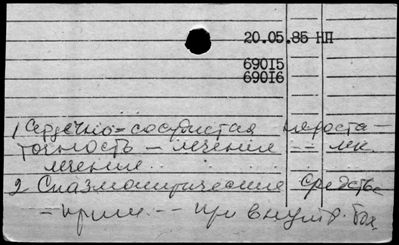 20.05.85 НП
69015
69016
1 Сердечно-сосудистая недоста-
точность - лечение -- лек.
лечение.
2 Спазмолитические средства
- прим. -- при внутр. бол.